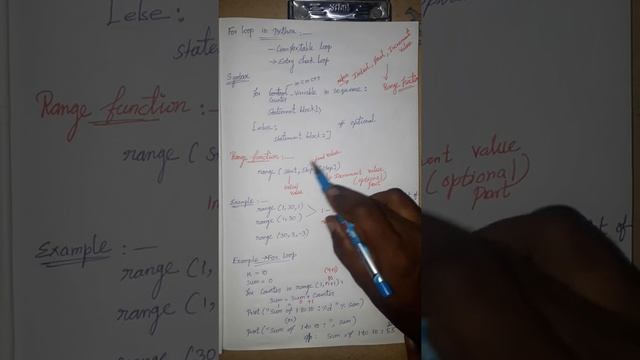 For loop in Python :-
- Comfortable loop
→ Entry check loop
Syntax
Initial, final, Increment value
Range Function
for control Variable in sequence:
Counter
statement block1
[else:
statement block2] # optional
Range function :-
final value
range ( start, stop, step)
Initial value
Increment value
(optional) Part
Example :-
range (1, 30, 1)
range (1, 30)
range (30, 3, -3)
Example → For loop
n = 10
sum = 0
(n+1)
for counter in range (1, n+1):
sum = sum + counter
Print ("sum of 1 to 10 : %d" % sum)
Print ("sum of 1 to 10 :", sum)
o/p: sum of 1 to 10 : 55